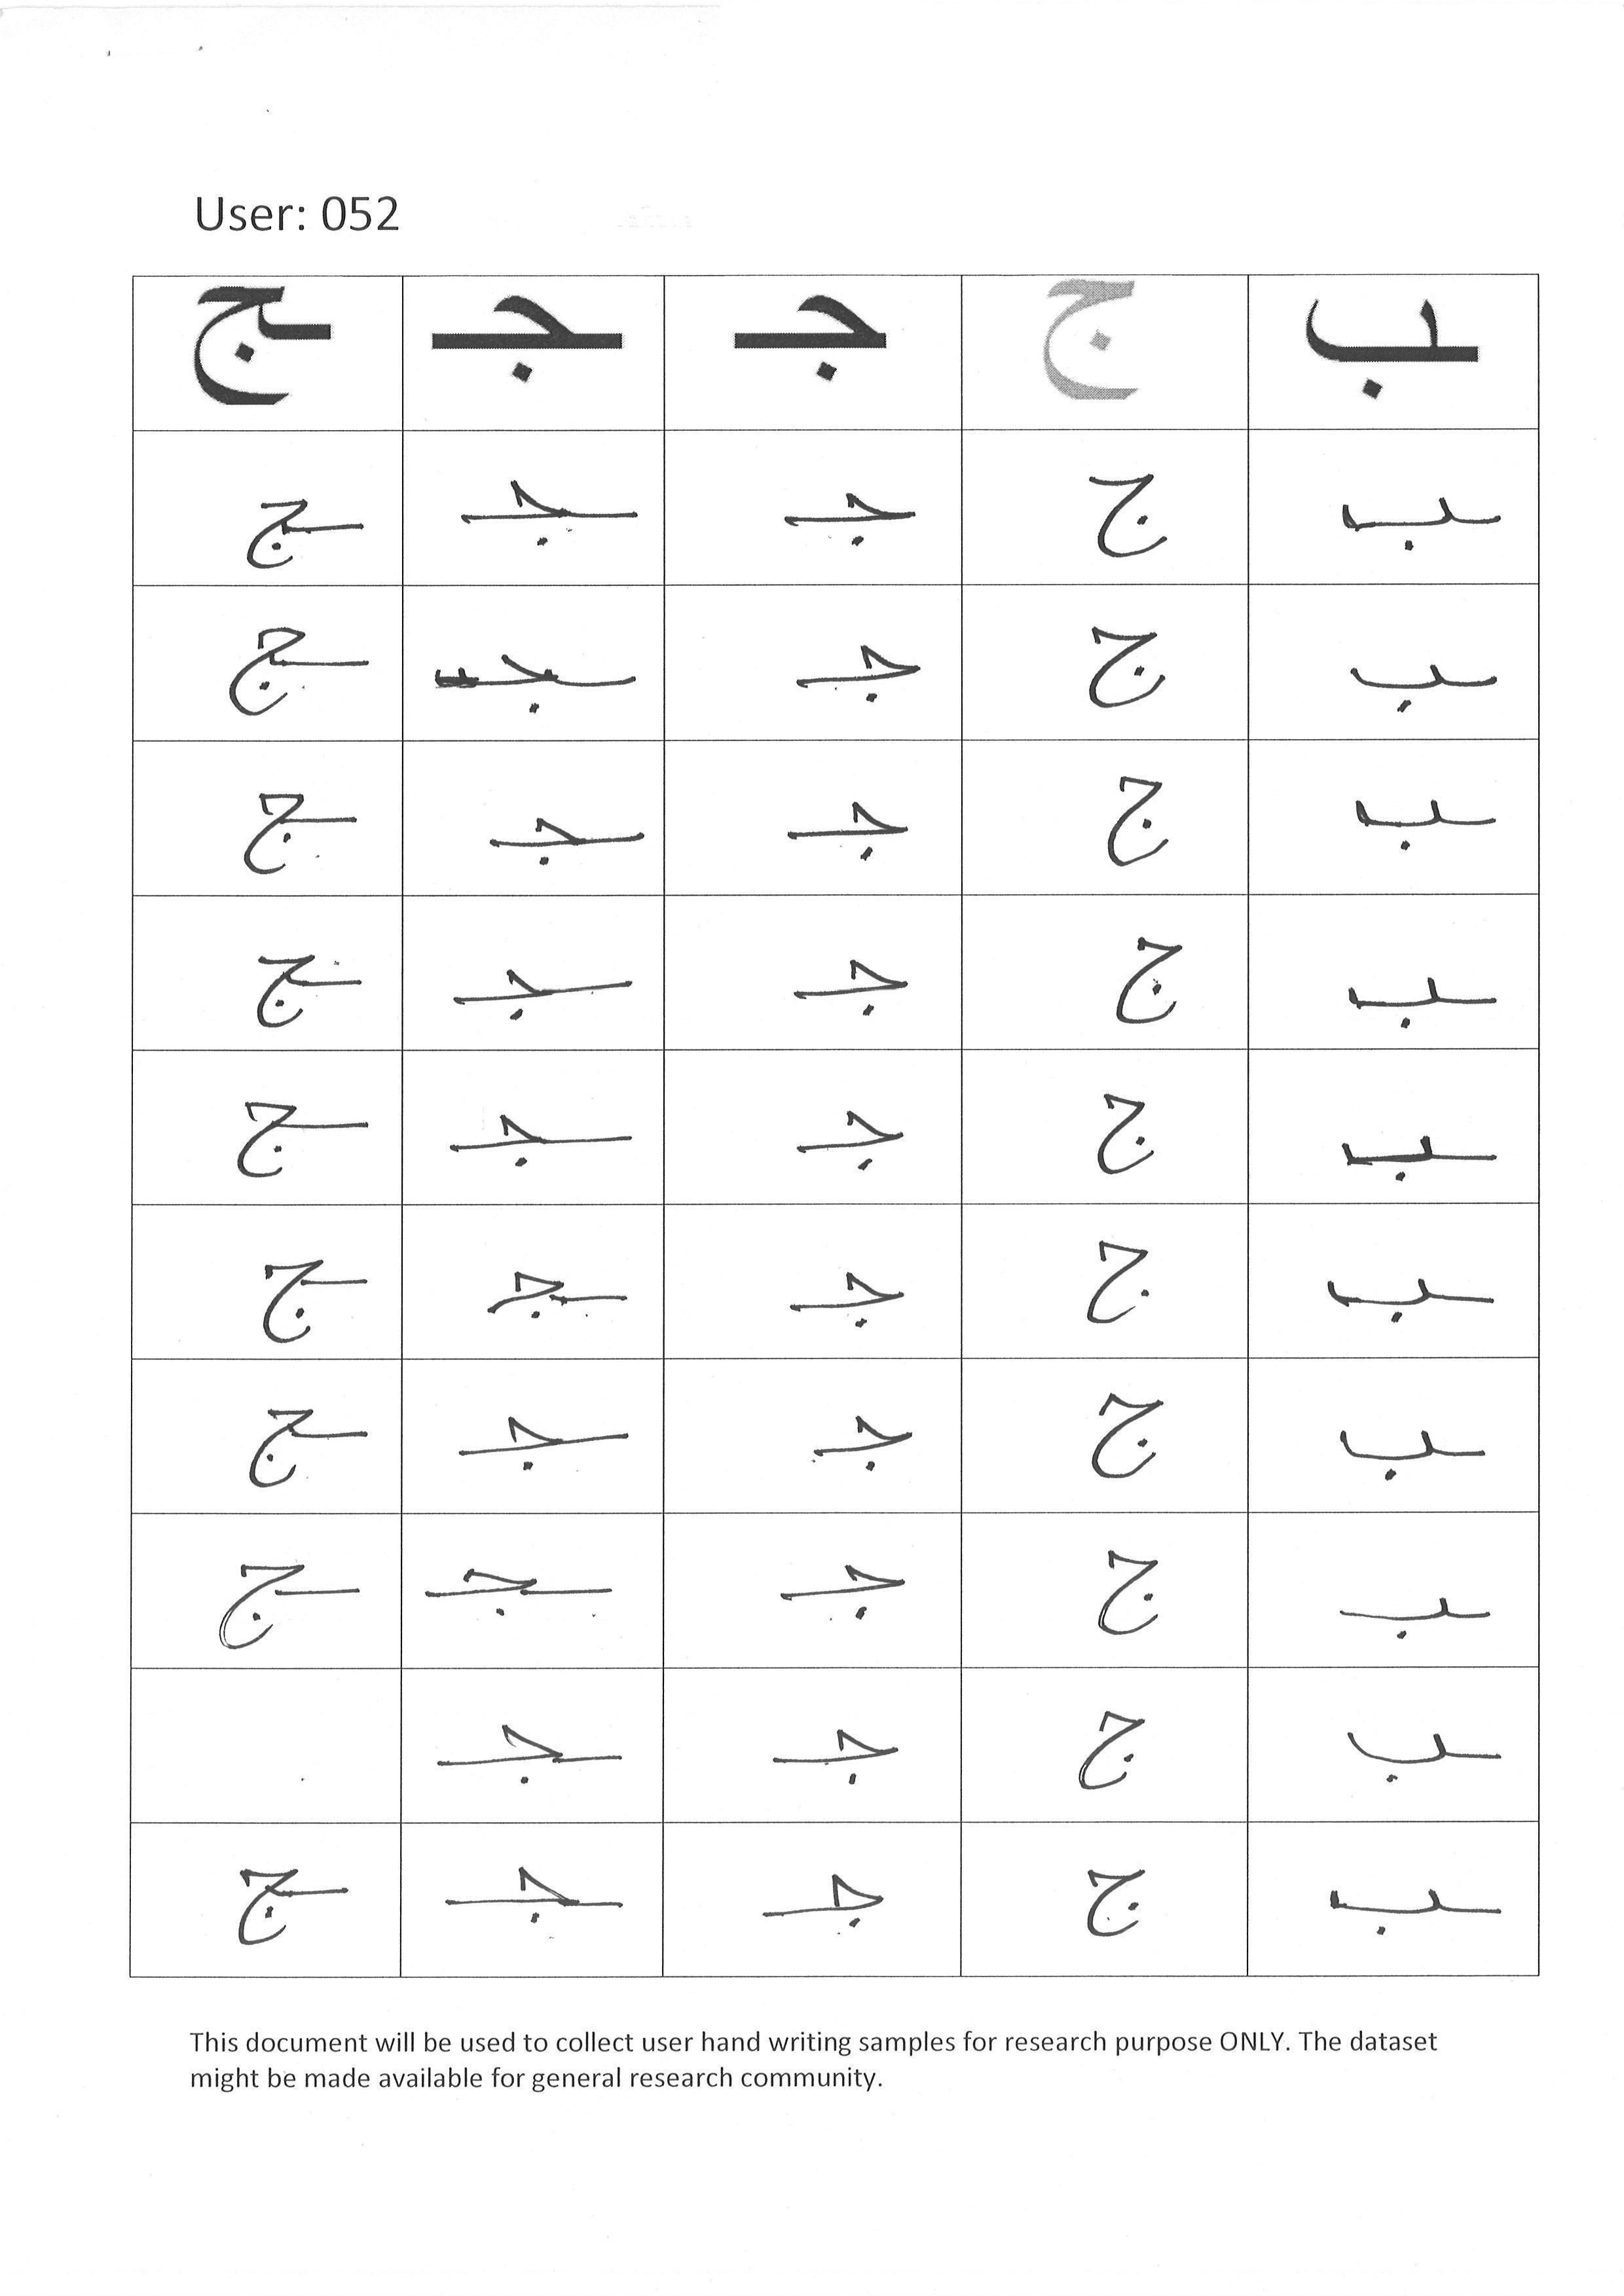 User: 052
ـب ج جـ ـجـ ـج
ـب ج جـ ـجـ ـج
ـب ج جـ ـجـ ـج
ـب ج جـ ـجـ ـج
ـب ج جـ ـجـ ـج
ـب ج جـ ـجـ ـج
ـب ج جـ ـجـ ـج
ـب ج جـ ـجـ ـج
ـب ج جـ ـجـ ـج
ـب ج جـ ـجـ
ـب ج جـ ـجـ ـج
This document will be used to collect user hand writing samples for research purpose ONLY. The dataset
might be made available for general research community.